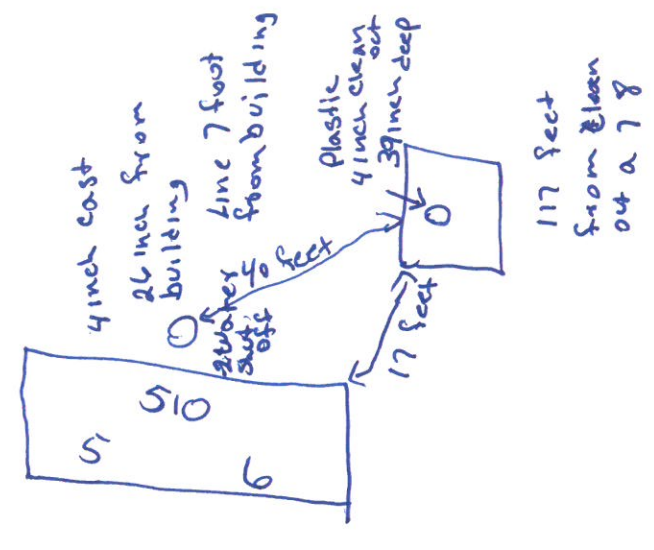 4 inch cast
26 inch from
building
Line 7 foot
from building
Plastic
4 inch clean
out
39 inch deep
117 feet
from clean
out a 7 8
40 feet
Water
shut
off
17 feet
510
5
6